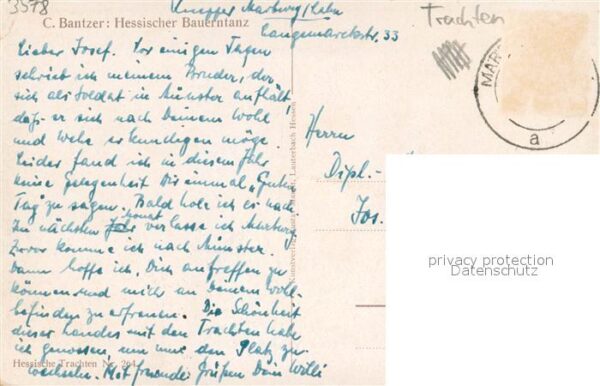 3578
Knepper Marburg/Lahn
C. Bantzer: Hessischer Bauerntanz
Langemarckstr. 33
Trachten
Lieber Josef. Vor einigen Tagen
schrieb ich meinem Bruder, der
sich als Soldat in Münster aufhält,
daß er sich nach Deinem Wohl
und Wehe erkundigen möge.
Leider fand ich in diesem Jahr
keine Gelegenheit Dir einmal „Guten
Tag" zu sagen. Bald hole ich es nach.
Im nächsten Monat verlasse ich Marburg.
Zuvor komme ich nach Münster.
Dann hoffe ich, Dich antreffen zu
können und mich an Deinem Wohl-
befinden zu erfreuen. Die Schönheit
dieses Landes mit den Trachten habe
ich genossen, um nun den Platz zu
wechseln. Mit freundl. Grüßen Dein Willi
Hessische Trachten Nr. 264
Lauterbach Hessen
MAR
a
Herrn
Dipl.-
Jos.
privacy protection
Datenschutz